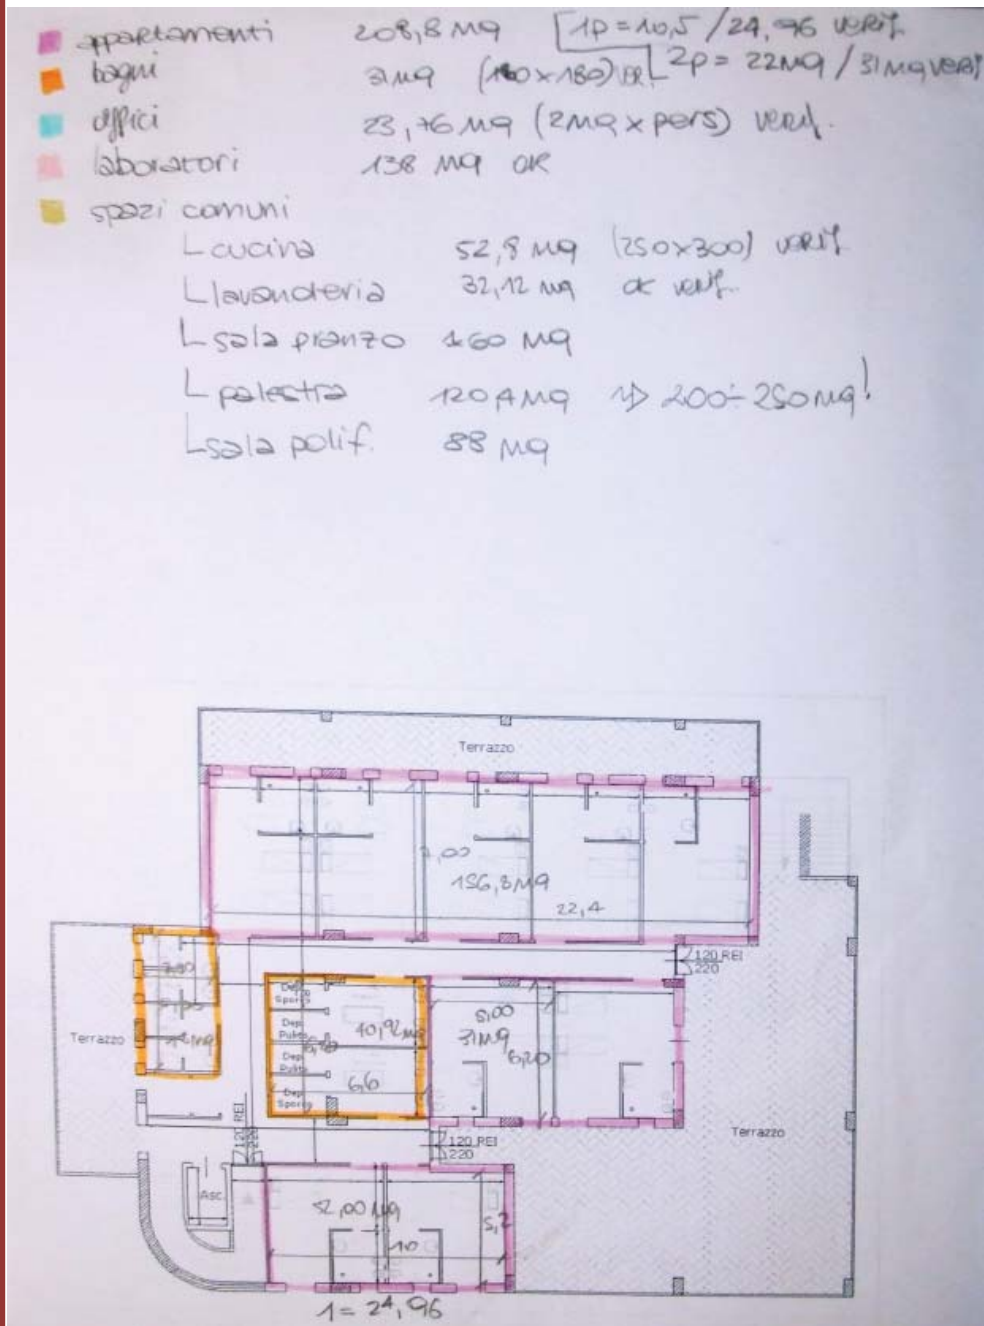 appartamenti 208,8 mq [1p = 10,5 / 24,96 verif.
bagni 31 mq (180x180) ver [2p = 22mq / 31mq verif
uffici 23,76 mq (2mq x pers) verif.
laboratori 138 mq ok
spazi comuni
└ cucina 52,8 mq (250x300) verif.
└ lavanderia 32,12 mq ok verif.
└ sala pranzo 160 mq
└ palestra 120,4 mq => 200÷250mq!
└ sala polif. 88 mq
Terrazzo
7,00
156,8 mq
22,4
120 REI
220
Dep. Sporco
Dep. Pulito
40,92 mq
Dep. Pulito
6,6
Dep. Sporco
5,00
31 mq
6,20
Terrazzo
120 REI
220
120 REI
220
Terrazzo
Asc.
52,00 mq
5,2
10
1 = 24,96